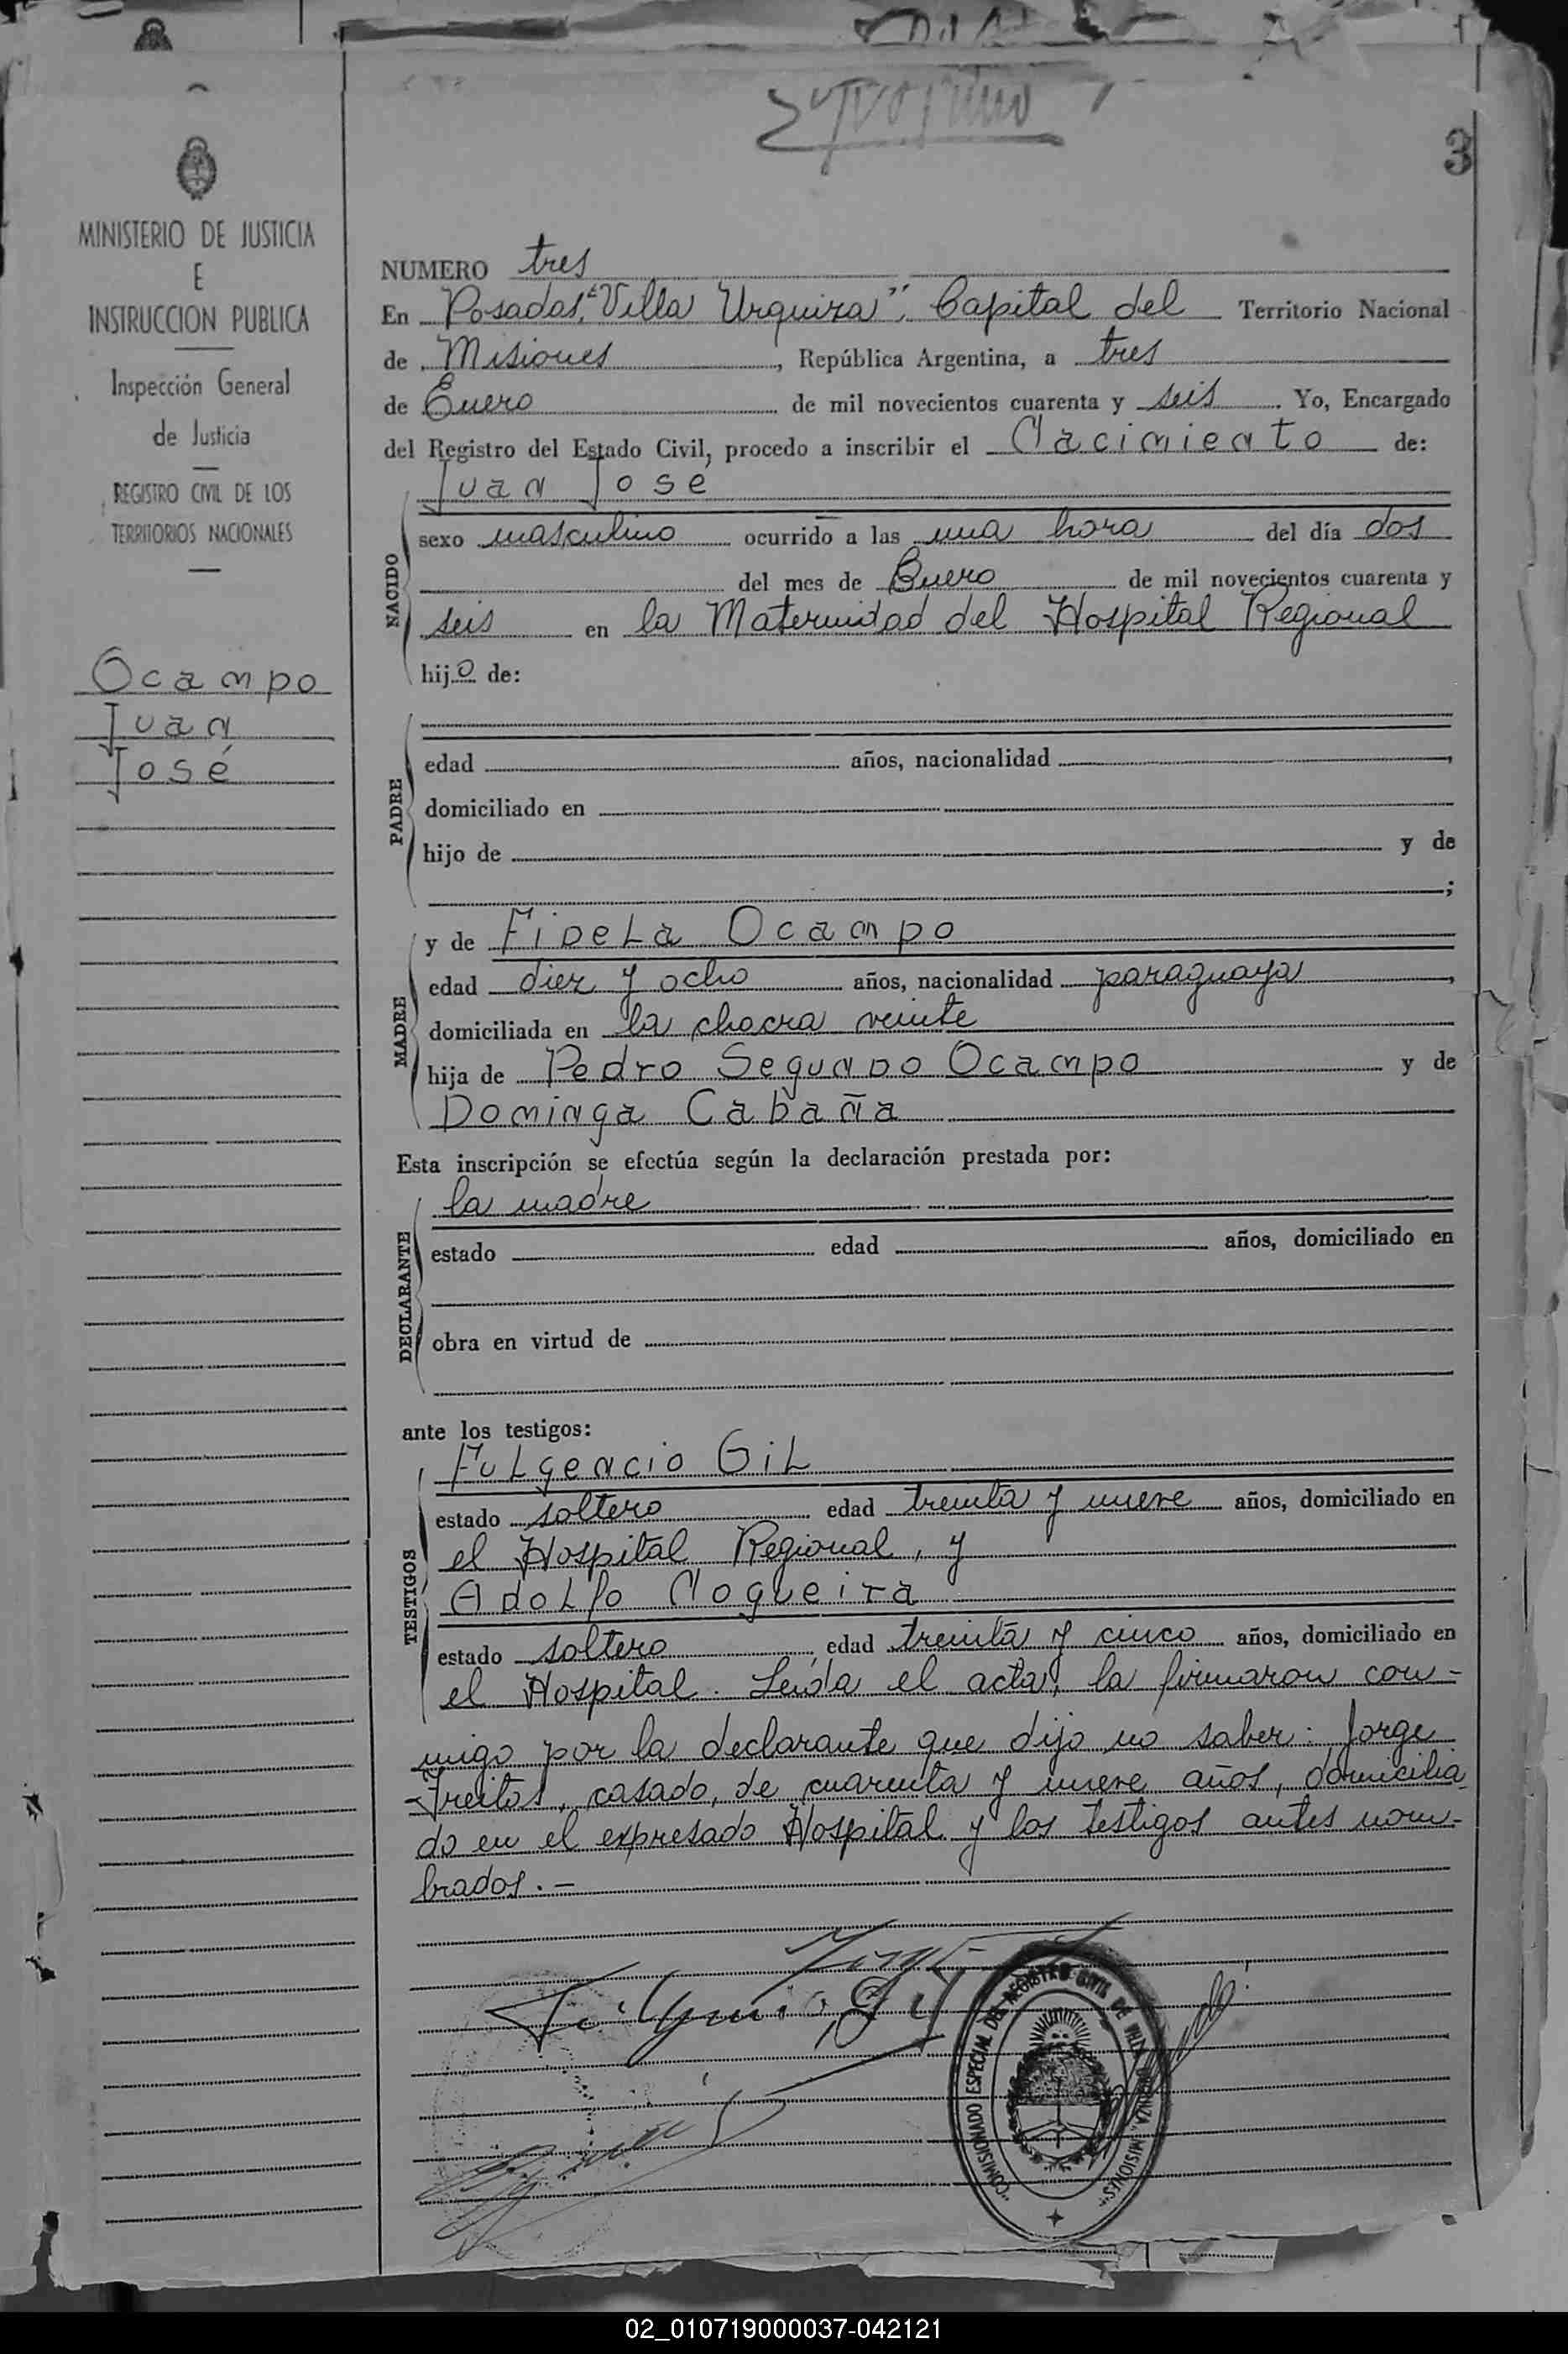 3
MINISTERIO DE JUSTICIA
E
INSTRUCCION PUBLICA
Inspección General
de Justicia
REGISTRO CIVIL DE LOS
TERRITORIOS NACIONALES
Ocampo
Juan
José
NUMERO tres
En Posadas, "Villa Urquiza", Capital del Territorio Nacional
de Misiones, República Argentina, a tres
de Enero de mil novecientos cuarenta y seis. Yo, Encargado
del Registro del Estado Civil, procedo a inscribir el Nacimiento de:
Juan José
NACIDO
sexo masculino ocurrido a las una hora del día dos
del mes de Enero de mil novecientos cuarenta y
seis en la Maternidad del Hospital Regional
hijo de:
PADRE
edad años, nacionalidad ,
domiciliado en
hijo de y de
;
MADRE
y de Fidela Ocampo
edad diez y ocho años, nacionalidad paraguaya,
domiciliada en la chacra veinte
hija de Pedro Segundo Ocampo y de
Dominga Cabaña
Esta inscripción se efectúa según la declaración prestada por:
DECLARANTE
la madre
estado edad años, domiciliado en
obra en virtud de
ante los testigos:
TESTIGOS
Fulgencio Gil
estado soltero edad treinta y nueve años, domiciliado en
el Hospital Regional, y
Adolfo Nogueira
estado soltero, edad treinta y cinco años, domiciliado en
el Hospital. Leída el acta, la firmaron con-
migo por la declarante que dijo no saber: Jorge
Freitas, casado, de cuarenta y nueve años, domicilia
do en el expresado Hospital y los testigos antes nom-
brados.-
"COMISIONADO ESPECIAL DEL REGISTRO CIVIL DE VILLA URQUIZA, MISIONES"
02_010719000037-042121